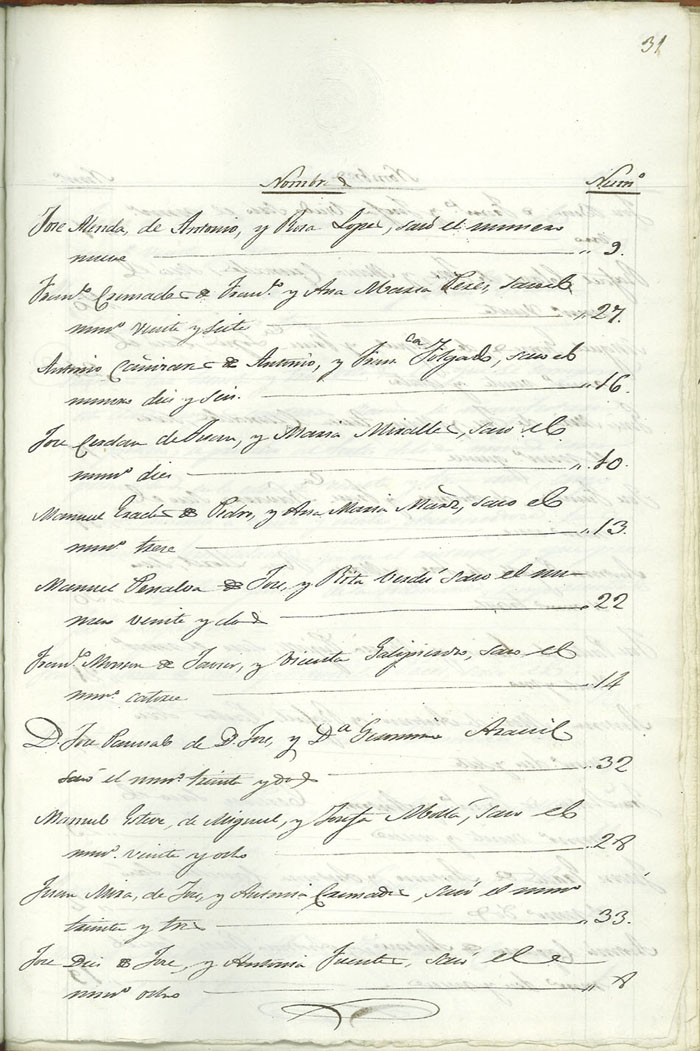 31
Nombres Numº
Jose Alenda, de Antonio, y Rosa Lopez, sacó el numero
nueve „ 9.
Franco. Cremades de Franco. y Ana Maria Perez, saco el
numº veinte y siete „ 27.
Antonio Cañizares de Antonio, y Franca Folgado, saco el
numero dies y seis. „ 16
Jose Cerdan de Juan, y Maria Miralles, saco el
numº dies „ 10.
Manuel Prades de Pedro, y Ana Maria saco el
numº trese „ 13.
Manuel Penalva de Jose, y Rita Verdú saco el nu-
mero veinte y dos „ 22
Franco. de Javier, y Vicenta saco el
numº. catorce „ 14
D. Jose Pascual de D. Jose, y Dª Geronima Aracil
sacó el numº treinta y dos „ 32
Manuel Esteve, de Miguel, y Josefa Mollá, saco el
numº. veinte y ocho 28
Juan Mira, de Jose, y Antonia Cremades, sacó el numº
treinta y tres 33.
Jose Dies de Jose, y Antonia Fuentes, sacó el
numº ocho „ 8